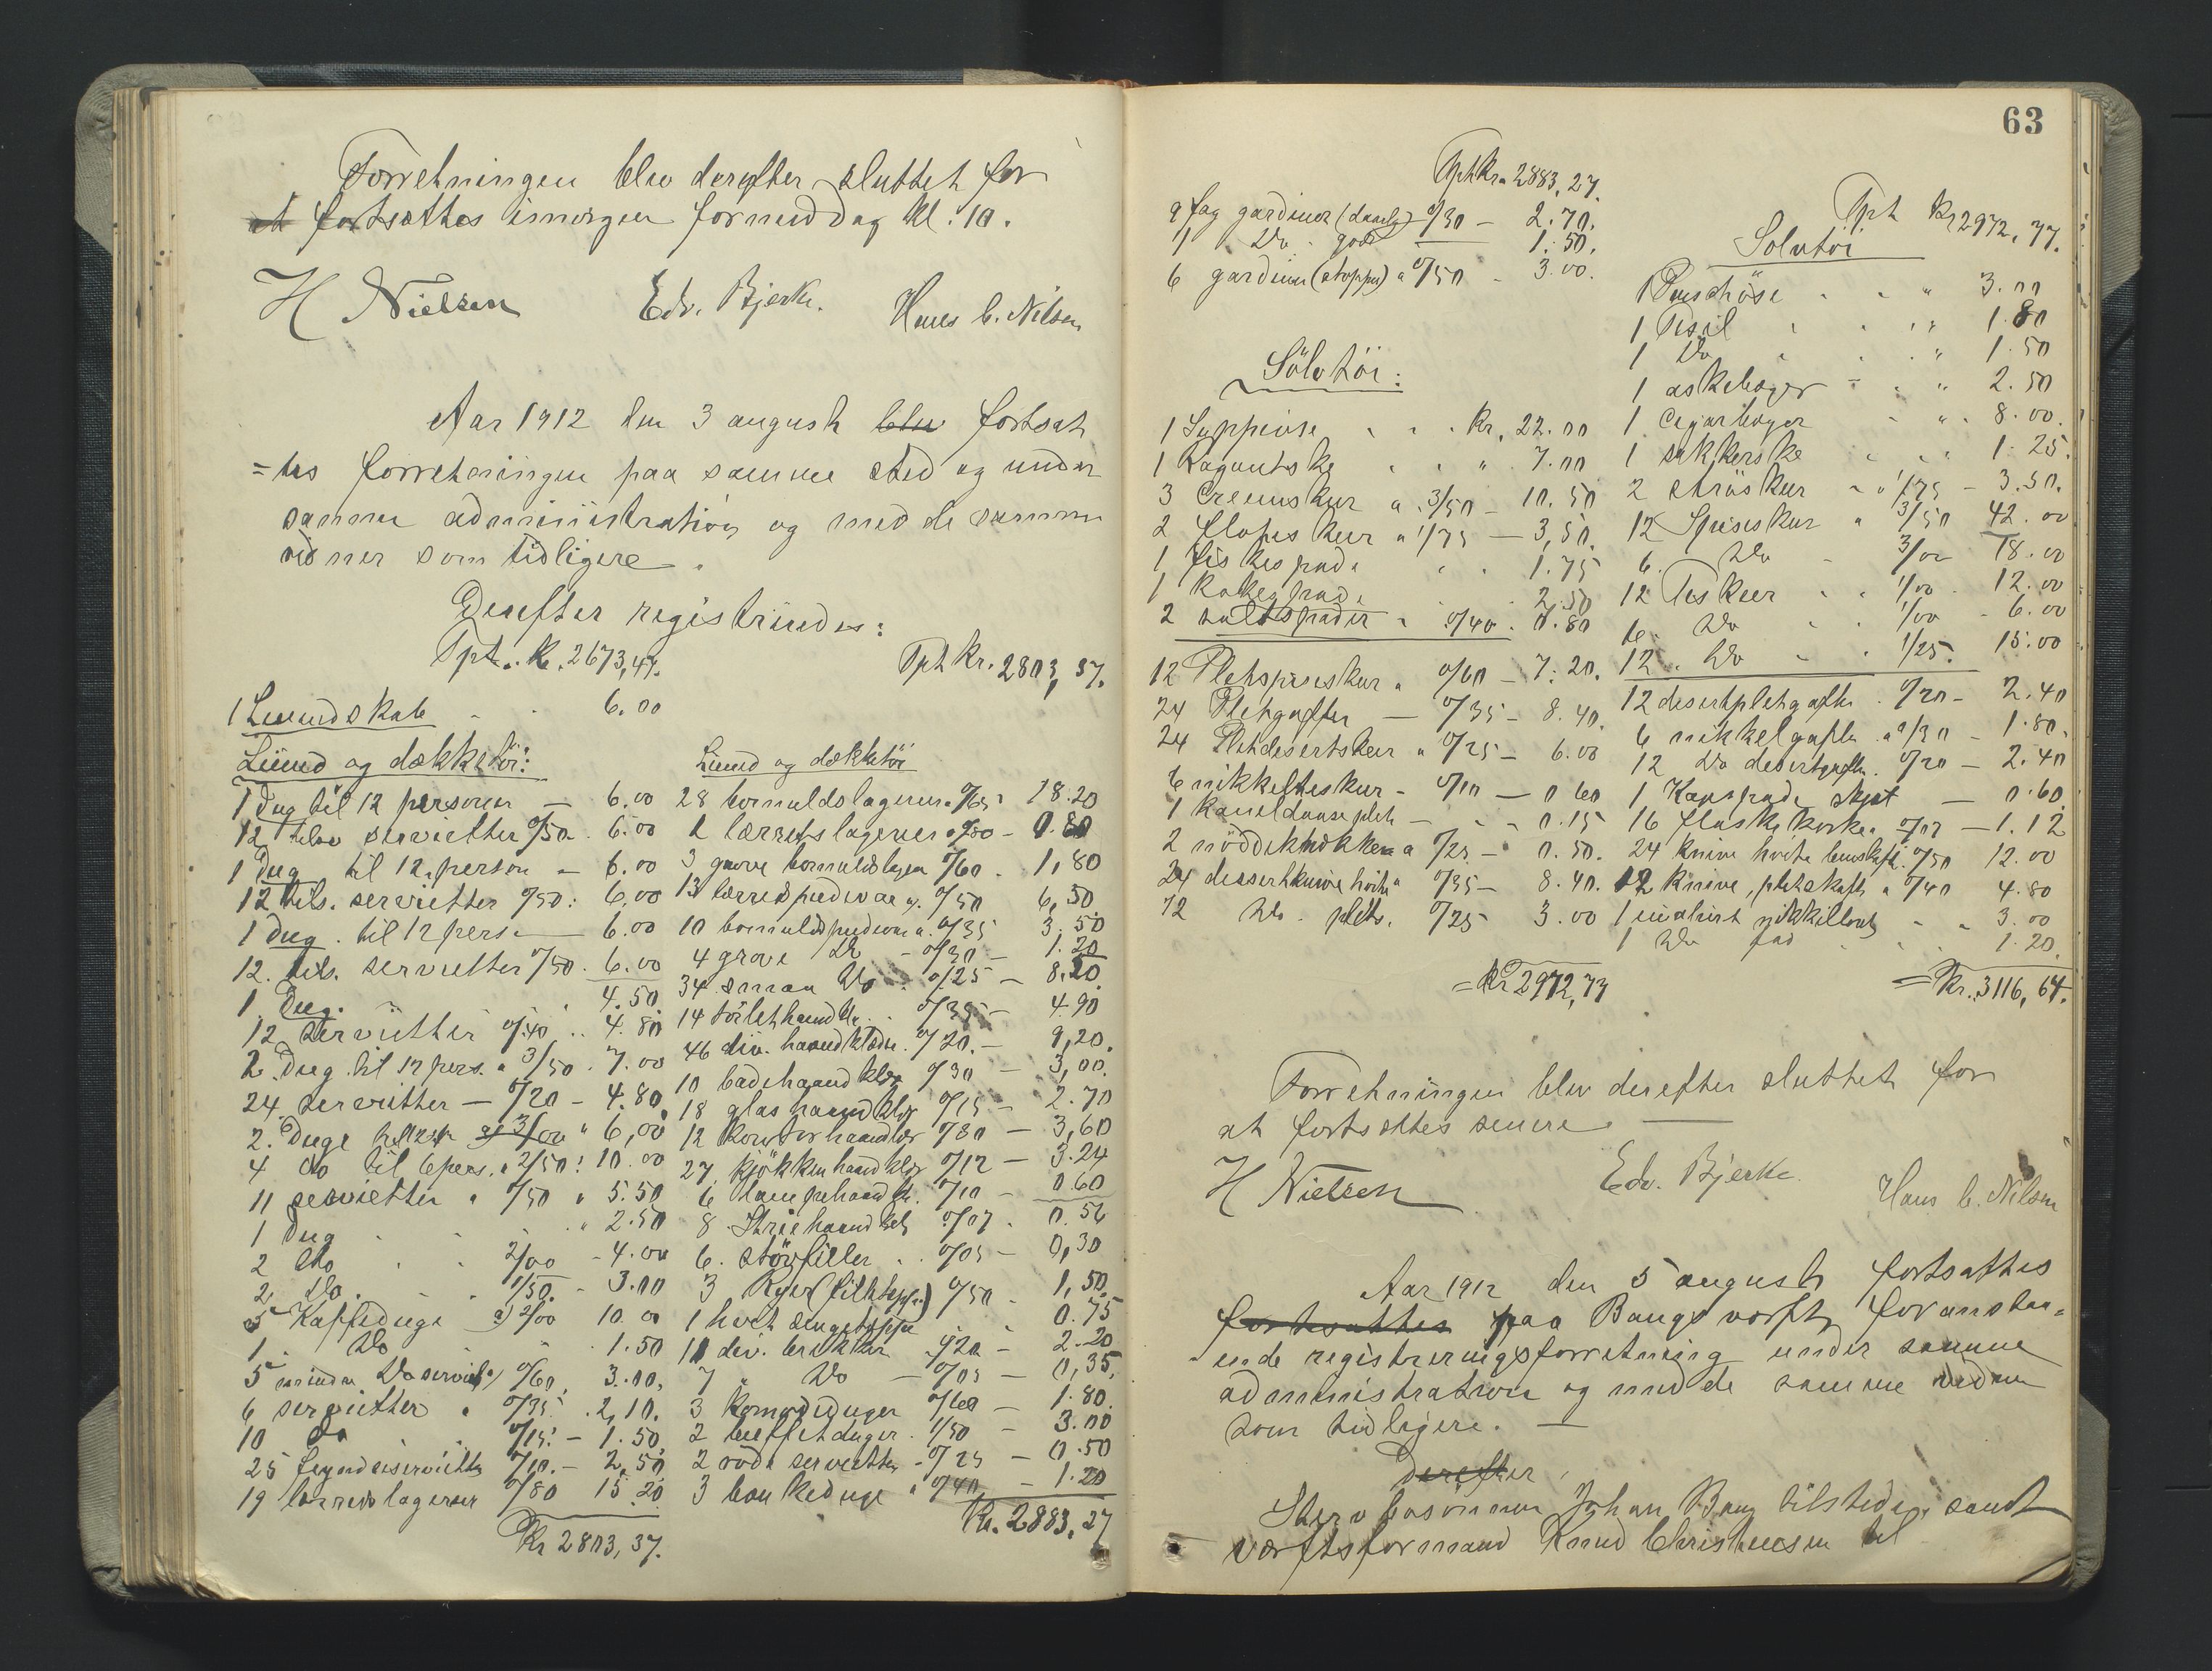 Forretningen blev derefter sluttet for
at fortsættes imorgen formiddag kl. 10.
H Nielsen Edv. Bjerke. Hans C. Nilsen
Aar 1912 den 3 august blev fortsat
=tes forretningen paa samme sted og under
samme administration og med de samme
vidner som tidligere.
Derefter registreredes:
Tpt. Kr. 2673,47.
1 Linnedskab 6.00
Linned og dækketöi:
1 dug til 12 personer — 6.00
12 tilsv servietter 0/50 6.00
1 Dug til 12 person — 6.00
12 tils. servietter 0/50: 6,00
1 dug. til 12 pers. — 6.00
12. tils. servietter 0/50. 6.00
1 Dug. 4.50
12 servietter 0/40 .. 4.80
2. Dug til 12 pers. a 3/50. 7.00
24 servietter — 0/20 - 4.80
2. Duge til 12 p a 3/00 " 6,00
4 do til 6 pers. a 2/50: 10.00
11 servietter a 0/50 " 5.50
1 Dug " 2.50
2 do 2/00 - 4.00
2 Do. 1/50. - 3.00
5 Kaffeduge a 2/00 10.00
1. Do 1.50
5 mindre Do 0/60 3.00,
6 servietter a 0/35 2,10.
10 Do 0/15. - 1.50
25 servietter 0/10. - 2,50
19 lærredslagener 0/80 15.20
Kr 2803,37.
Tpt Kr. 2803,37.
Linned og dækketöi
28 bomuldslagener a 0/65 18.20
1 lærretslagener a 0/80 - 0.80
3 grove bomuldslagen 0/60 - 1,80
13 lærredspudevar a. 0/50 6,50
10 bomuldspudevar a. 0/35 3.50
4 grove Do - 0/30 - 1.20
34 smaa Do 0/25 - 8.20
14 toiletthaandkl. 0/35 - 4.90
46 div. haandklæder. 0/20. - 9,20.
10 badehaandklær 0/30 - 3,00.
18 glashaandklær 0/15 - 2.70
12 haandklær 0/30 - 3,60
27 kjökkenhaandklær 0/12 - 3.24
6 lampehaandkl. 0/10 - 0.60
8 Striehaandkl. 0/07. 0.56
6. störfiller .. 0/05 - 0,30
3 Ryer (filttepper) 0/50 - 1,50
1 hvit sengeteppe 0.75
11 div. brikker 0/20 - 2.20
7 " Do — 0/05 - 0,35,
3 komodeduger 0/60 - 1.80.
2 buffetduger. 1/50 - 3.00
2 röde servietter - 0/25 - 0.50
3 bankeduge a 0/40 - 1.20
Kr. 2883,27
63
Tpt Kr. 2883,27.
9 fag gardiner (daarlige) 0/30 - 2.70.
1 Do. god — 1.50.
6 gardiner (stopper) a 0/50 - 3.00.
Sölvtöi:
1 Suppeöse Kr. 22.00
1 Ragoutske " 7.00
3 Cremskeer a 3/50 - 10.50
2 flöteskeer a 1/75 — 3,50.
1 fiskespade 1.75
1 kakespade 2.50
2 saltspader a 0/40. 0.80
12 Pletspiseskeer a 0/60 - 7.20.
24 Pletgafler — 0/35 - 8.40.
24 Pletdesertskeer a 0/25 - 6.00
6 nikkelteskeer - 0/10 — 0 60
1 kaneldaase plet — 0.15
2 nöddeknækkere a 0/25 - 0.50.
24 dessertknive hvite a 0/35 - 8.40.
12 Do. plets. 0/25 3.00
= Kr 2972,77
Tpt Kr 2972,77.
Solvtöi
1 Punschöse " 3.00
1 Tesil " 1.80
1 Do " 1.50
1 askebæger " 2.50
1 Cigarbæger " 8.00.
1 sukkerske " 1.25.
2 ströskeer a 1/75 - 3.50.
12 Spiseskeer a 3/50 42.00
6. Do - 3/00 18.00
12 Teskeer 1/00 12.00
6. Do 1/00 - 6.00
12. Do 1/25. 15.00
12 desertpletgafler. 0/20 - 2.40
6 nikkelgafler a 0/30 - 1.80.
12 Do desertgafler. 0/20 - 2.40
1 Kagespade skjæt — 0.60
16 flaskekorker 0/07 — 1.12
24 knive hvite benskaft. 0/50 12.00
12 knive, pletskaft a 0/40 4.80
1 ovalrundt nikkelbret " 3.00
1 Do fad 1.20.
= Kr. 3116,64.
Forretningen blev derefter sluttet for
at fortsættes senere —
H Nielsen Edv. Bjerke. Hans C. Nilsen
Aar 1912 den 5 august fortsattes
fortsattes paa Bangs værft, foranstaa-
ende registreringsforretning under samme
administration og med de samme vidner
som tidligere. —
Derefter
Stervbosönnen Johan Bang tilstede, samt
værftsformand Knud Christensen til